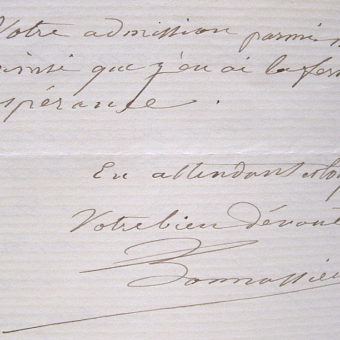 Votre admission parmi n
ainsi que j'en ai la fer
espérance.
En attendant
Votre bien dévoué
Bonnassieu